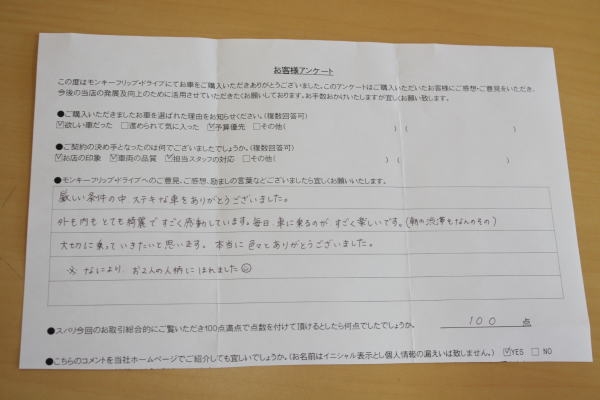 お客様アンケート
この度はモンキーフリップ・ドライブにてお車をご購入いただきありがとうございました。このアンケートはご購入いただいたお客様にご感想・ご意見をいただき、
今後の当店の発展及向上のために活用させていただきたくお願いしております。お手数おかけいたしますが宜しくお願い致します。
●ご購入いただきましたお車を選ばれた理由をお知らせください。(複数回答可)
☑欲しい車だった □進められて気に入った ☑予算優先 □その他( ) ( )
●ご契約の決め手となったのは何でございましたでしょうか。(複数回答可)
☑お店の印象 ☑車両の品質 ☑担当スタッフの対応 □その他( ) ( )
●モンキーフリップ・ドライブへのご意見、ご感想、励ましの言葉などございましたら宜しくお願いいたします。
厳しい条件の中、ステキな車をありがとうございました。
外も内もとても綺麗ですごく感動しています。毎日、車に乗るのが、すごく楽しいです。(朝の渋滞もなんのその)
大切に乗っていきたいと思います。本当に色々とありがとうございました。
※なにより、お2人の人柄にほれました☺
●スバリ今回のお取引総合的にご覧いただき100点満点で点数を付けて頂けるとしたら何点でしたでしょうか。 100 点
●こちらのコメントを当社ホームページでご紹介しても宜しいでしょうか。(お名前はイニシャル表示とし個人情報の漏えいは致しません。) ☑YES □NO